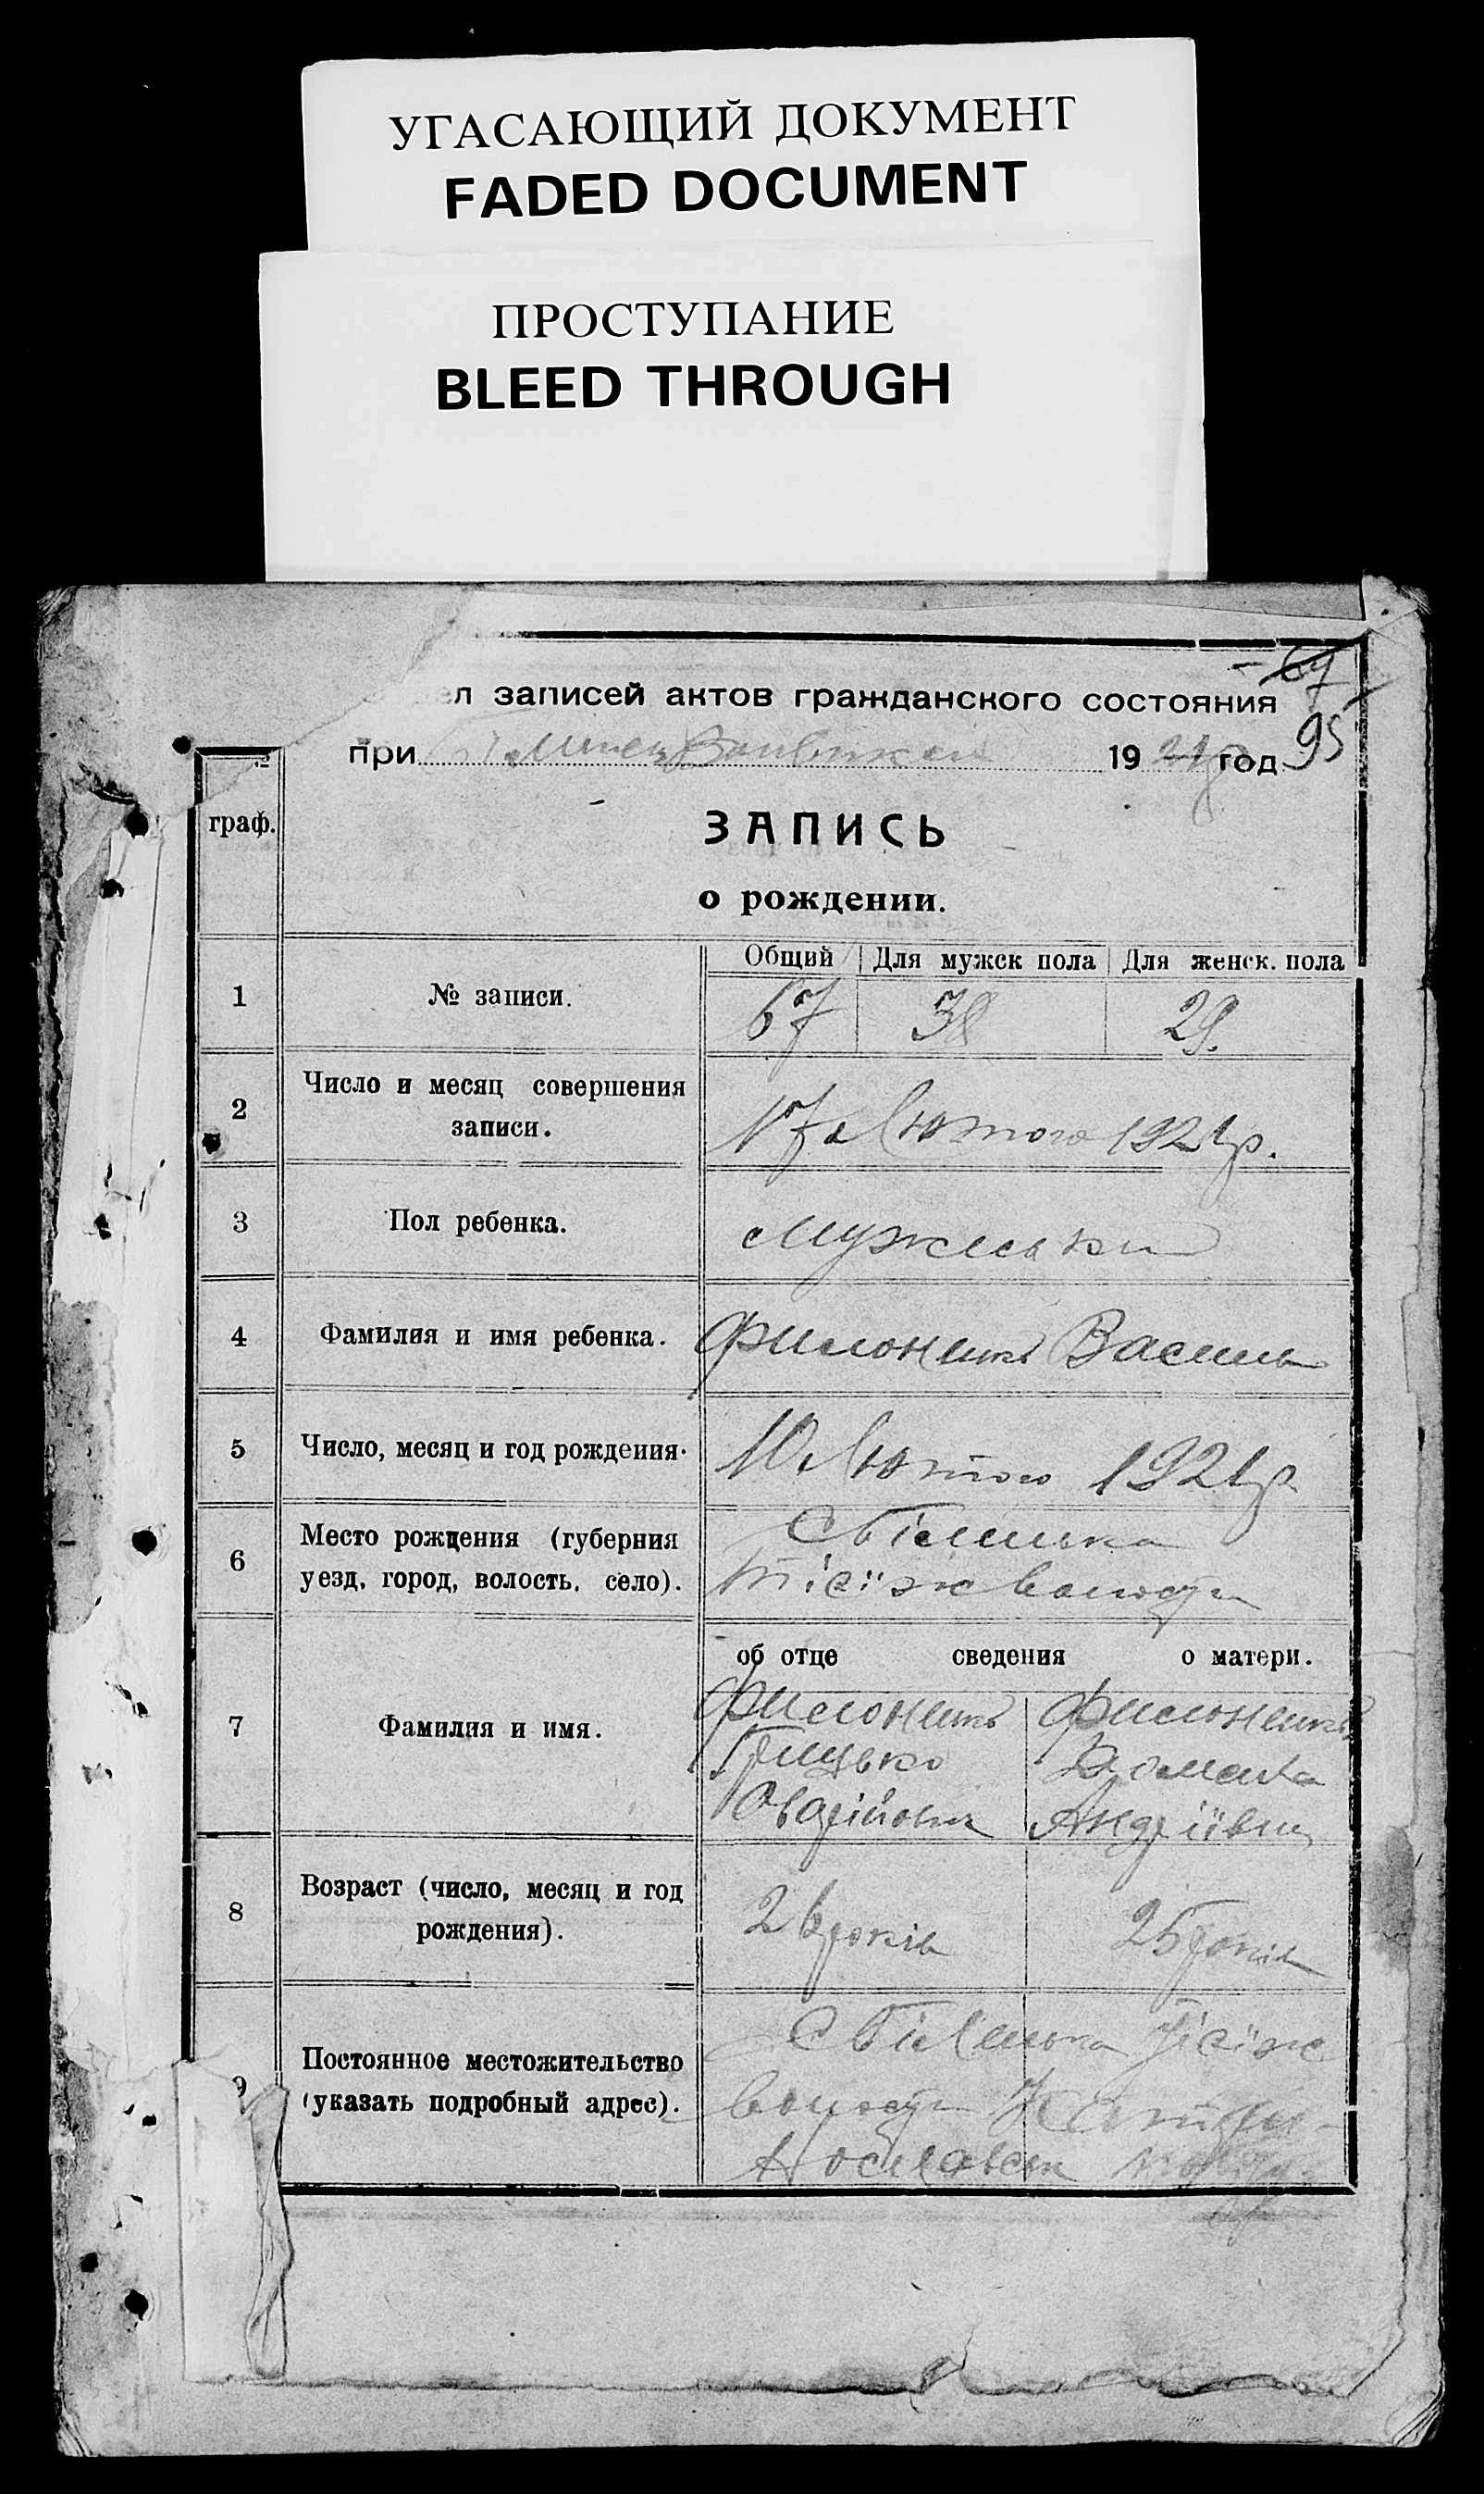 УГАСАЮЩИЙ ДОКУМЕНТ
FADED DOCUMENT
ПРОСТУПАНИЕ
BLEED THROUGH
67
ел записей актов гражданского состояния
при 1921 год 95
граф.
ЗАПИСЬ
о рождении.
Общий Для мужск пола Для женск. пола
1 № записи. 67 38 29.
2 Число и месяц совершения
записи. 17 Лютого 1921 р.
3 Пол ребенка. Мужеськи
4 Фамилия и имя ребенка. Филоненко Василь
5 Число, месяц и год рождения. 10 Лютого 1921 р.
6 Место рождения (губерния
уезд, город, волость, село). С Білинька
волости
об отце сведения о матери.
7 Фамилия и имя.
Грицько Домаха
Овдрійович Андріівна
8 Возраст (число, месяц и год
рождения). 26 років 25 років
9 Постоянное местожительство
(указать подробный адрес). С
волости